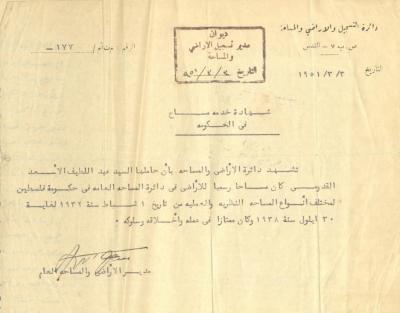 دائرة التسجيل والاراضي والمساحة
ص.ب ٧ – القدس
التاريخ ١٩٥١/٣/٣
ديوان
مدير تسجيل الاراضي
والمساحة
التاريخ
الرقم: /١٧٧ –
شهادة خدمه مساح
في الحكومه
تشهد دائرة الأراضي والمساحه بأن حاملها السيد عبد اللطيف الأسعد
القدومي كان مساحا رسميا للأراضي في دائرة المساحه العامه في حكومة فلسطين
لمختلف أنواع المساحه النظريه والعمليه من تاريخ ١ شباط سنة ١٩٣٢ لغاية
٣٠ ايلول سنة ١٩٣٨ وكان ممتازا في عمله وأخلاقه وسلوكه ٠
مدير الأراضي والمساحه العام